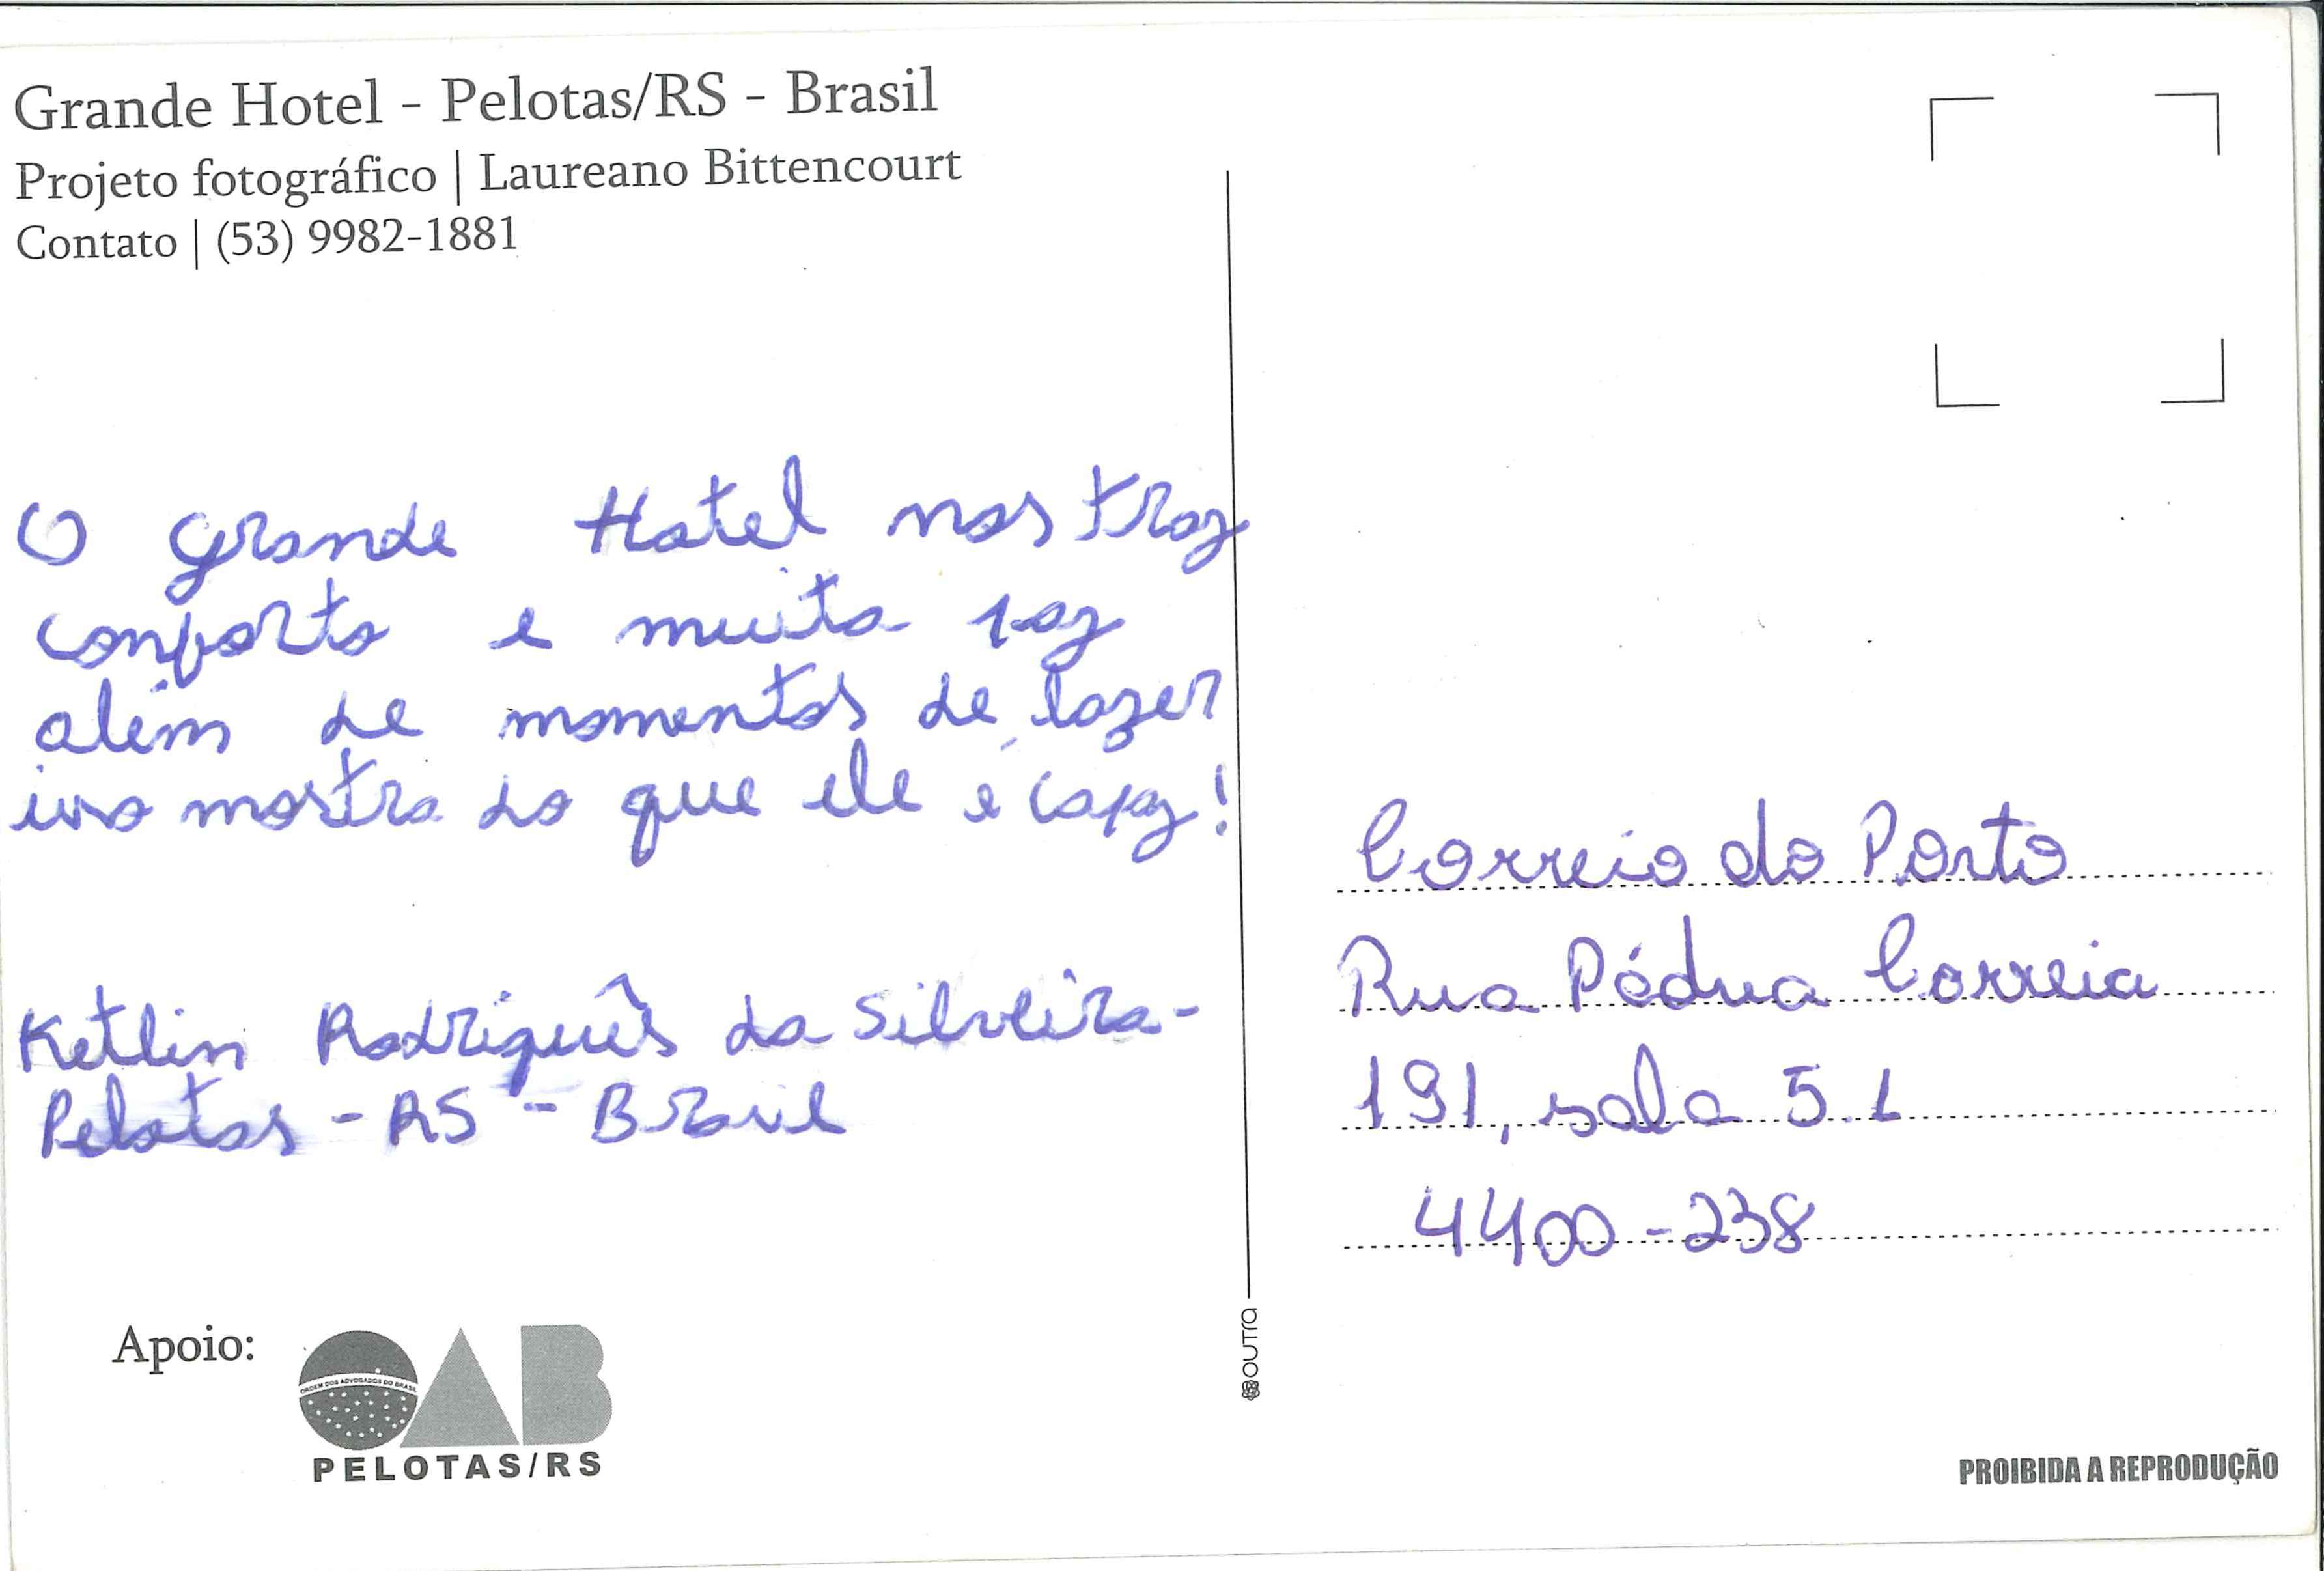 Grande Hotel - Pelotas/RS - Brasil
Projeto fotográfico | Laureano Bittencourt
Contato | (53) 9982-1881
O Grande Hotel nos traz
conforto e muita paz
além de momentos de lazer
isso mostra do que ele é capaz!
Ketlin Rodriguês da Silveira-
Pelotas - RS - Brasil
Apoio:
ORDEM DOS ADVOGADOS DO BRASIL
OAB
PELOTAS/RS
OUTRA
Correio do Porto
Rua Pádua Correia
191, sala 5.1
4400-238
PROIBIDA A REPRODUÇÃO